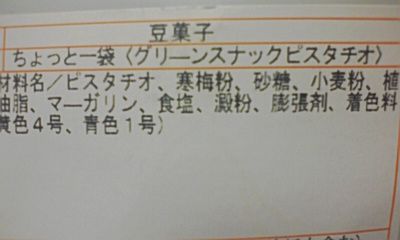 豆菓子
ちょっと一袋〈グリーンスナックピスタチオ〉
材料名／ピスタチオ、寒梅粉、砂糖、小麦粉、植
油脂、マーガリン、食塩、澱粉、膨張剤、着色料
黄色４号、青色１号）